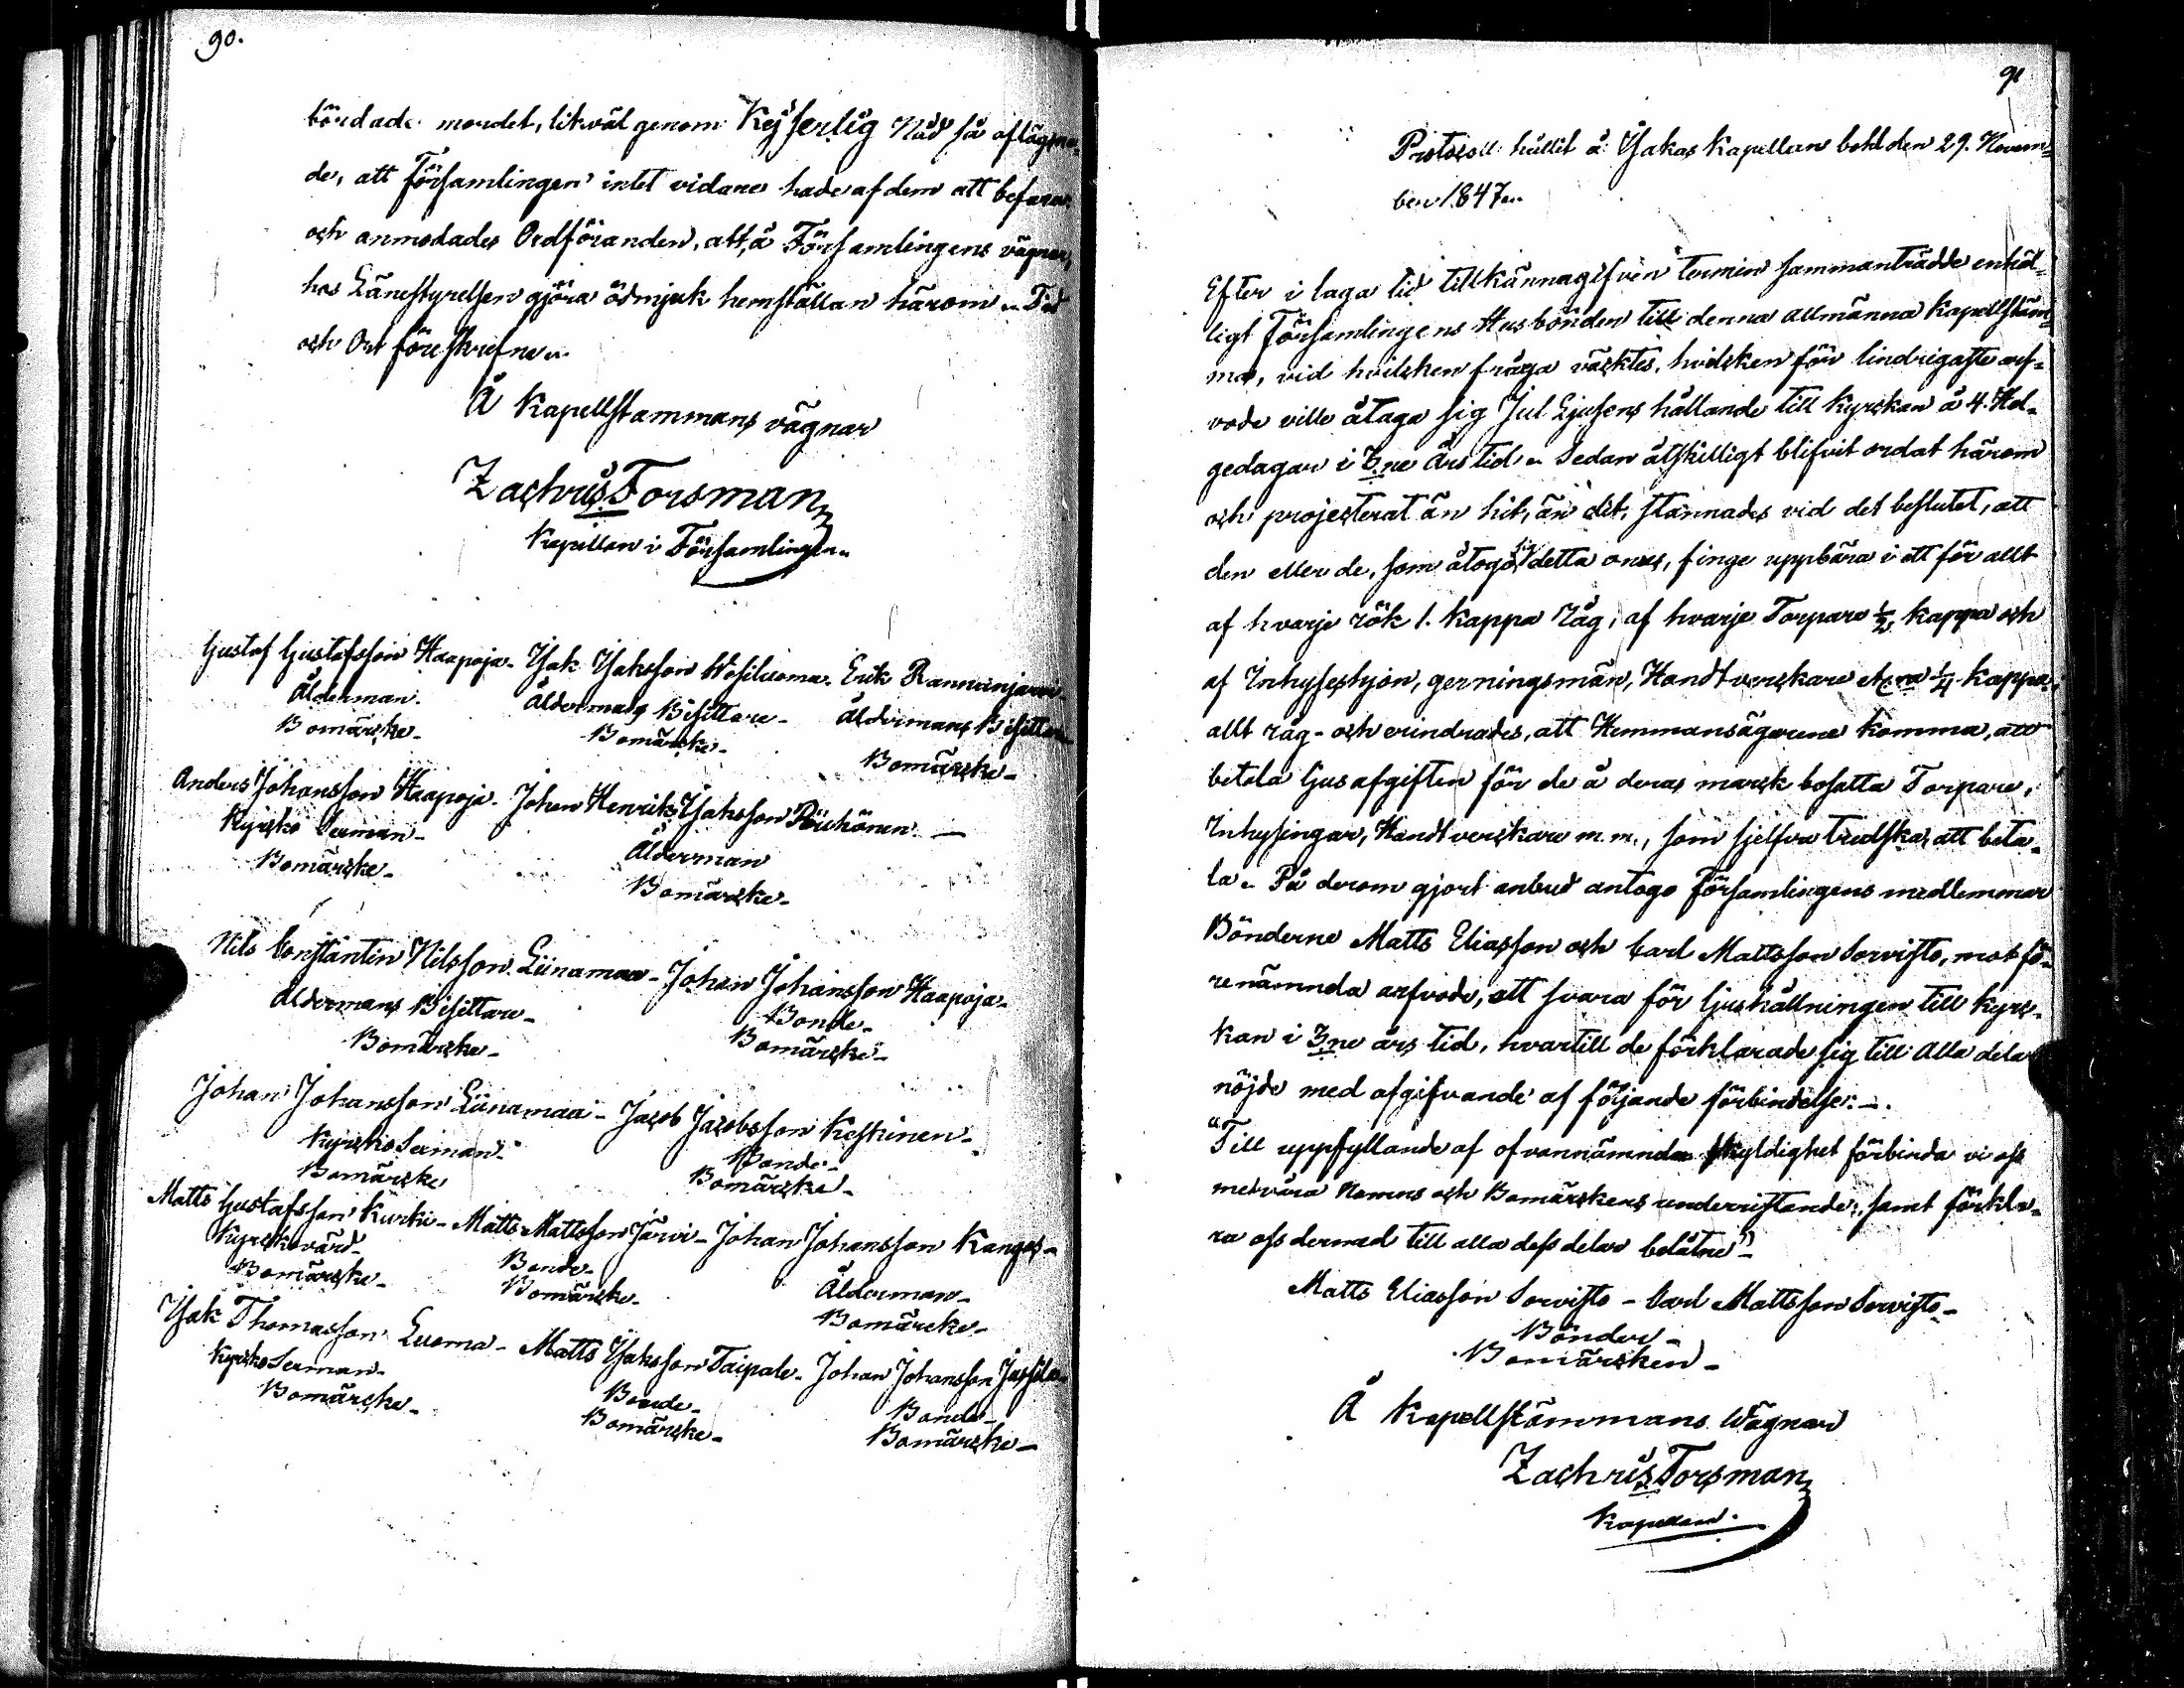 90.
bördade mordet, likväl genom Kejserlig Nåd så aflägsna-
de, att Församlingen intet vidare hade af dem att befara
och anmodades Ordföranden, att, å Församlingens vägnar,
hos Länestyrelsen gjöra ödmjuk hemställan härom. Tid
och Ort föreskrefne.
Å Kapellstammans vägnar
Zachris Forsman
Kapellan i Församlingen.
Gustaf Gustafsson Haapoja - Isak Isaksson Wesiluoma - Erik Rannanjärvi -
Ålderman. Åldermans Bisittare - Åldermans Bisittare
Bomärcke - Bomärcke - Bomärcke -
Anders Johansson Haapoja - Johan Henrik Isaksson Pöuhönen -
Kyrcko Sexman - Ålderman
Bomärcke - Bomärcke -
Nils Constantin Nilsson Liinamaa - Johan Johansson Haapoja -
Åldermans Bisittare - Bonde -
Bomärcke - Bomärcke -
Johan Johansson Liinamaa - Jacob Jacobsson Keskinen -
Kyrcko Sexman - Bonde -
Bomärcke Bomärcke -
Matts Gustafsson Kurki - Matts Mattsson Järvi - Johan Johansson Kangas -
Kyrckovärd - Bonde - Ålderman -
Bomärcke - Bomärcke - Bomärcke -
Isak Thomasson Luoma - Matts Isaksson Taipale - Johan Johansson Jussila -
Kyrcko Sexman - Bonde - Bonde -
Bomärcke - Bomärcke - Bomärcke -
91
Protocoll hållit å Ylihärmä Kapellans bohl den 29. Novem-
ber 1847.
Efter i laga tid tillkännagifven termin sammanträdde enhäl-
ligt Församlingens Husbönder till denna allmänna Kapellstäm-
ma, vid hvilcken fråga väcktes, hvilcken för lindrigaste arf-
vode ville åtaga sig Jul Ljusens hållande till Kyrckan å 4. Hel-
gedagar i 3ne Års tid. Sedan åtskilligt blifvit ordat härom
och projecterat än hit, än dit, stannades vid det beslutet, att
den eller de, som åtogo sig detta onus, finge uppbära i ett för allt
af hvarje rök 1. kappa råg, af hvarje Torpare ½ kappa och
af Inhyseshjon, gerningsmän, Handtverckare &c ¼ kappa,
allt råg - och erindrades, att Hemmansägarene komma, att
betala ljusafgiften för de å deras marck bosatta Torpare,
Inhysingar, Handtverckare m. m., som sjelfva tredska, att beta-
la. På derom gjort anbud antogo Församlingens medlemmar
Bönderne Matts Eliasson och Carl Mattsson Sorvisto, mot fö-
renämnda arfvode, att svara för ljushållningen till Kyrc-
kan i 3ne års tid, hvartill de förklarade sig till alla delar
nöjde med afgifvande af följande förbindelse: -
"Till uppfyllande af ofvannämnda skyldighet förbinda vi oss
med våra Namns och Bomärckens underristande, samt förkla-
ra oss dermed till alla dess delar belåtne" -
Matts Eliasson Sorvisto - Carl Mattsson Sorvisto -
Bönder -
Bomärcken -
Å Kapellstämmans Wägnar
Zachris Forsman
Kapellan.